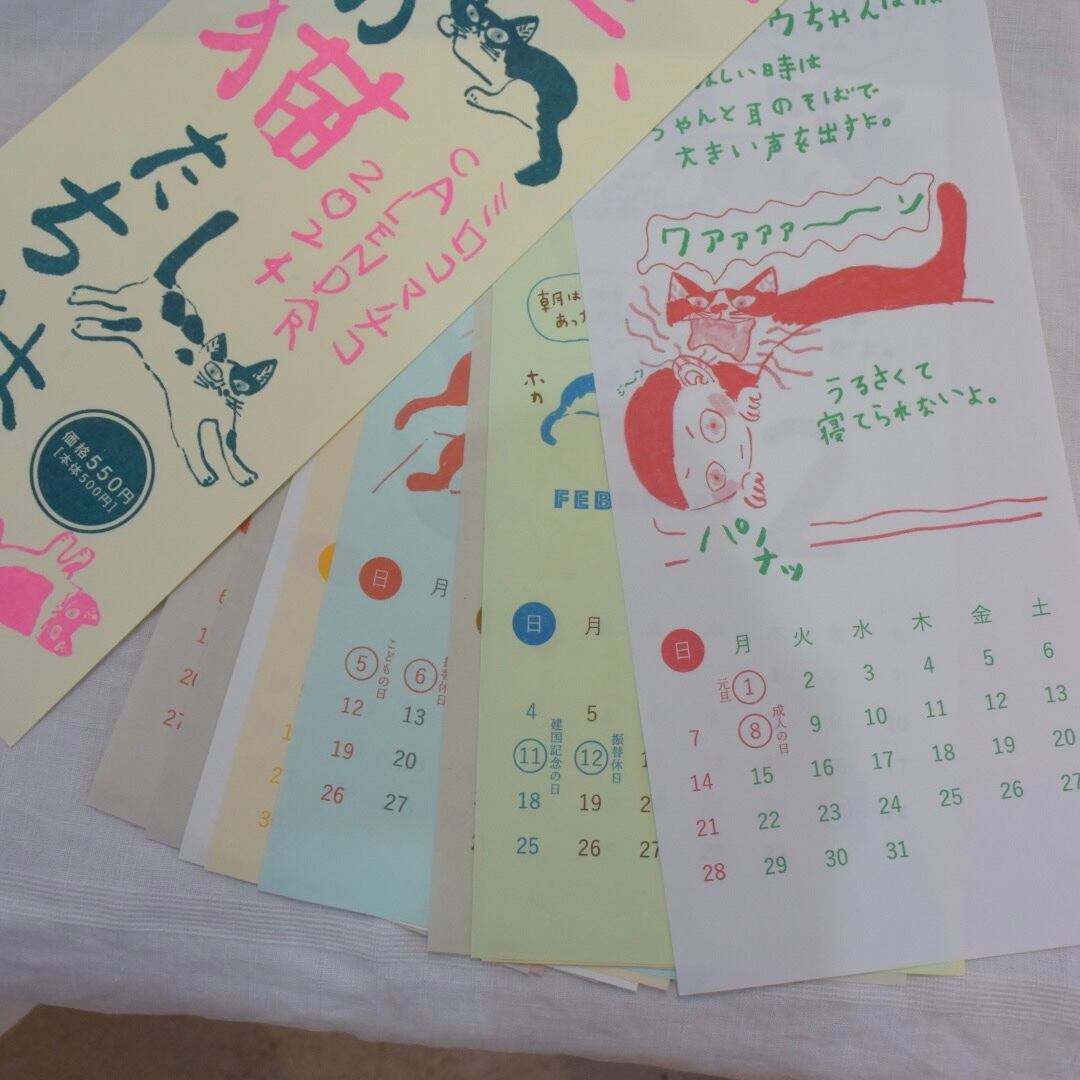 猫
たち
2024
CALENDAR
ミロコマチコ
価格550円
[本体500円]
ほしい時は
ちゃんと耳のそばで
大きい声を出すよ。
ワァァァァーーン
ジ〜ン
うるさくて
寝てられないよ。
パチッ
日 月 火 水 木 金 土
元旦 1 2 3 4 5 6
7 8 成人の日 9 10 11 12 13
14 15 16 17 18 19 20
21 22 23 24 25 26 27
28 29 30 31
朝は
あっ
ホカ
FEB
日 月
4 5
11 建国記念の日 12 振替休日
18 19
25 26 27
日 月
5 こどもの日 6 振替休日
12 13
19 20
26 27